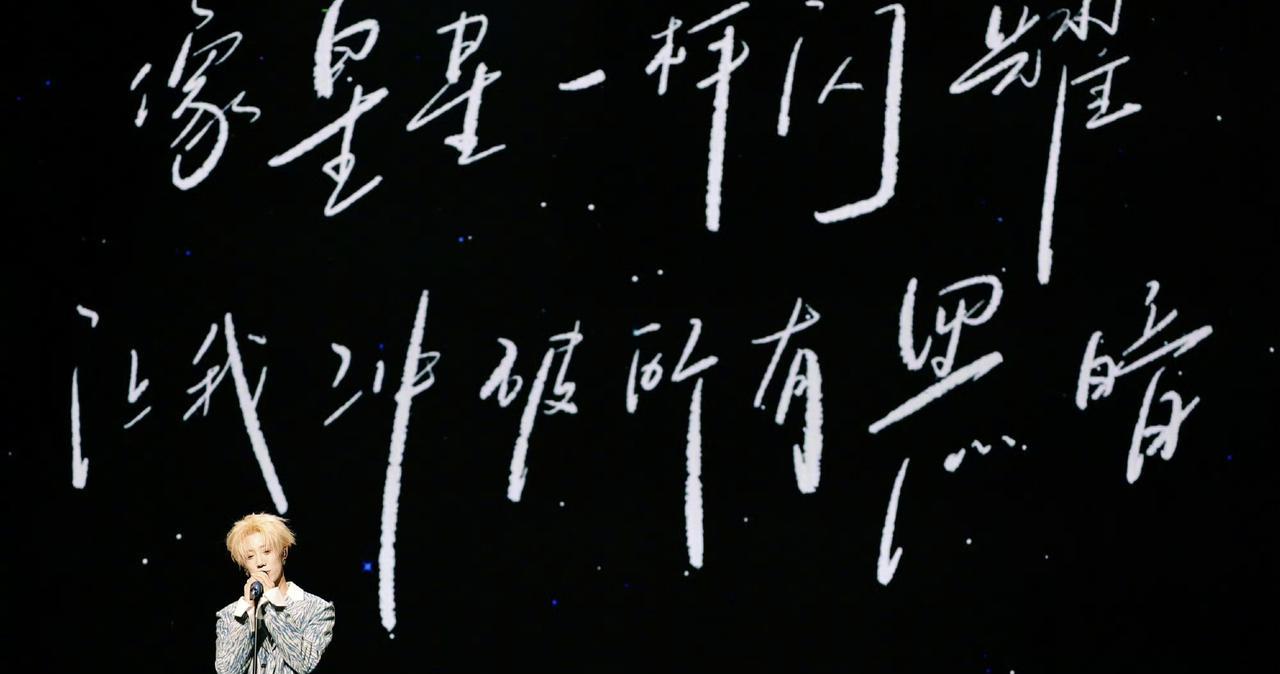 像星星一样闪耀
让我冲破所有黑暗